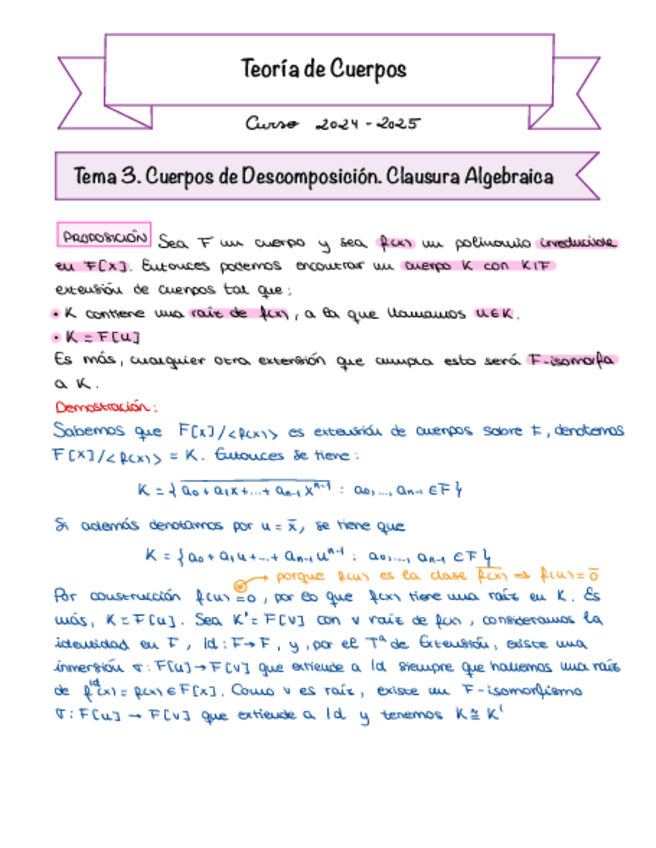 Teoría de Cuerpos
Curso 2024-2025
Tema 3. Cuerpos de Descomposición. Clausura Algebraica
PROPOSICIÓN Sea F un cuerpo y sea f(x) un polinomio irreducible
en F[x]. Entonces podemos encontrar un cuerpo K con K|F
extensión de cuerpos tal que:
• K contiene una raíz de f(x), a la que llamamos u∈K.
• K = F[u]
Es más, cualquier otra extensión que cumpla esto será F-isomorfa
a K.
Demostración:
Sabemos que F[x]/<f(x)> es extensión de cuerpos sobre F, denotemos
F[x]/<f(x)> = K. Entonces se tiene:
K = { a₀+a₁x+...+aₙ₋₁xⁿ⁻¹ : a₀,..., aₙ₋₁ ∈ F }
Si además denotamos por u = x̄, se tiene que
K = { a₀+a₁u+...+aₙ₋₁uⁿ⁻¹ : a₀,..., aₙ₋₁ ∈ F }
porque f(u) es la clase f(x) ⇒ f(u) = 0̄
Por construcción f(u) = 0, por lo que f(x) tiene una raíz en K. Es
más, K = F[u]. Sea K' = F[v] con v raíz de f(x), consideramos la
identidad en F, Id: F→F, y, por el Tª de Extensión, existe una
inmersión σ: F[u] → F[v] que extiende a Id siempre que hallemos una raíz
de fⁱᵈ(x) = f(x) ∈ F[x]. Como v es raíz, existe un F-isomorfismo
σ: F[u] → F[v] que extiende a Id y tenemos K ≅ K'